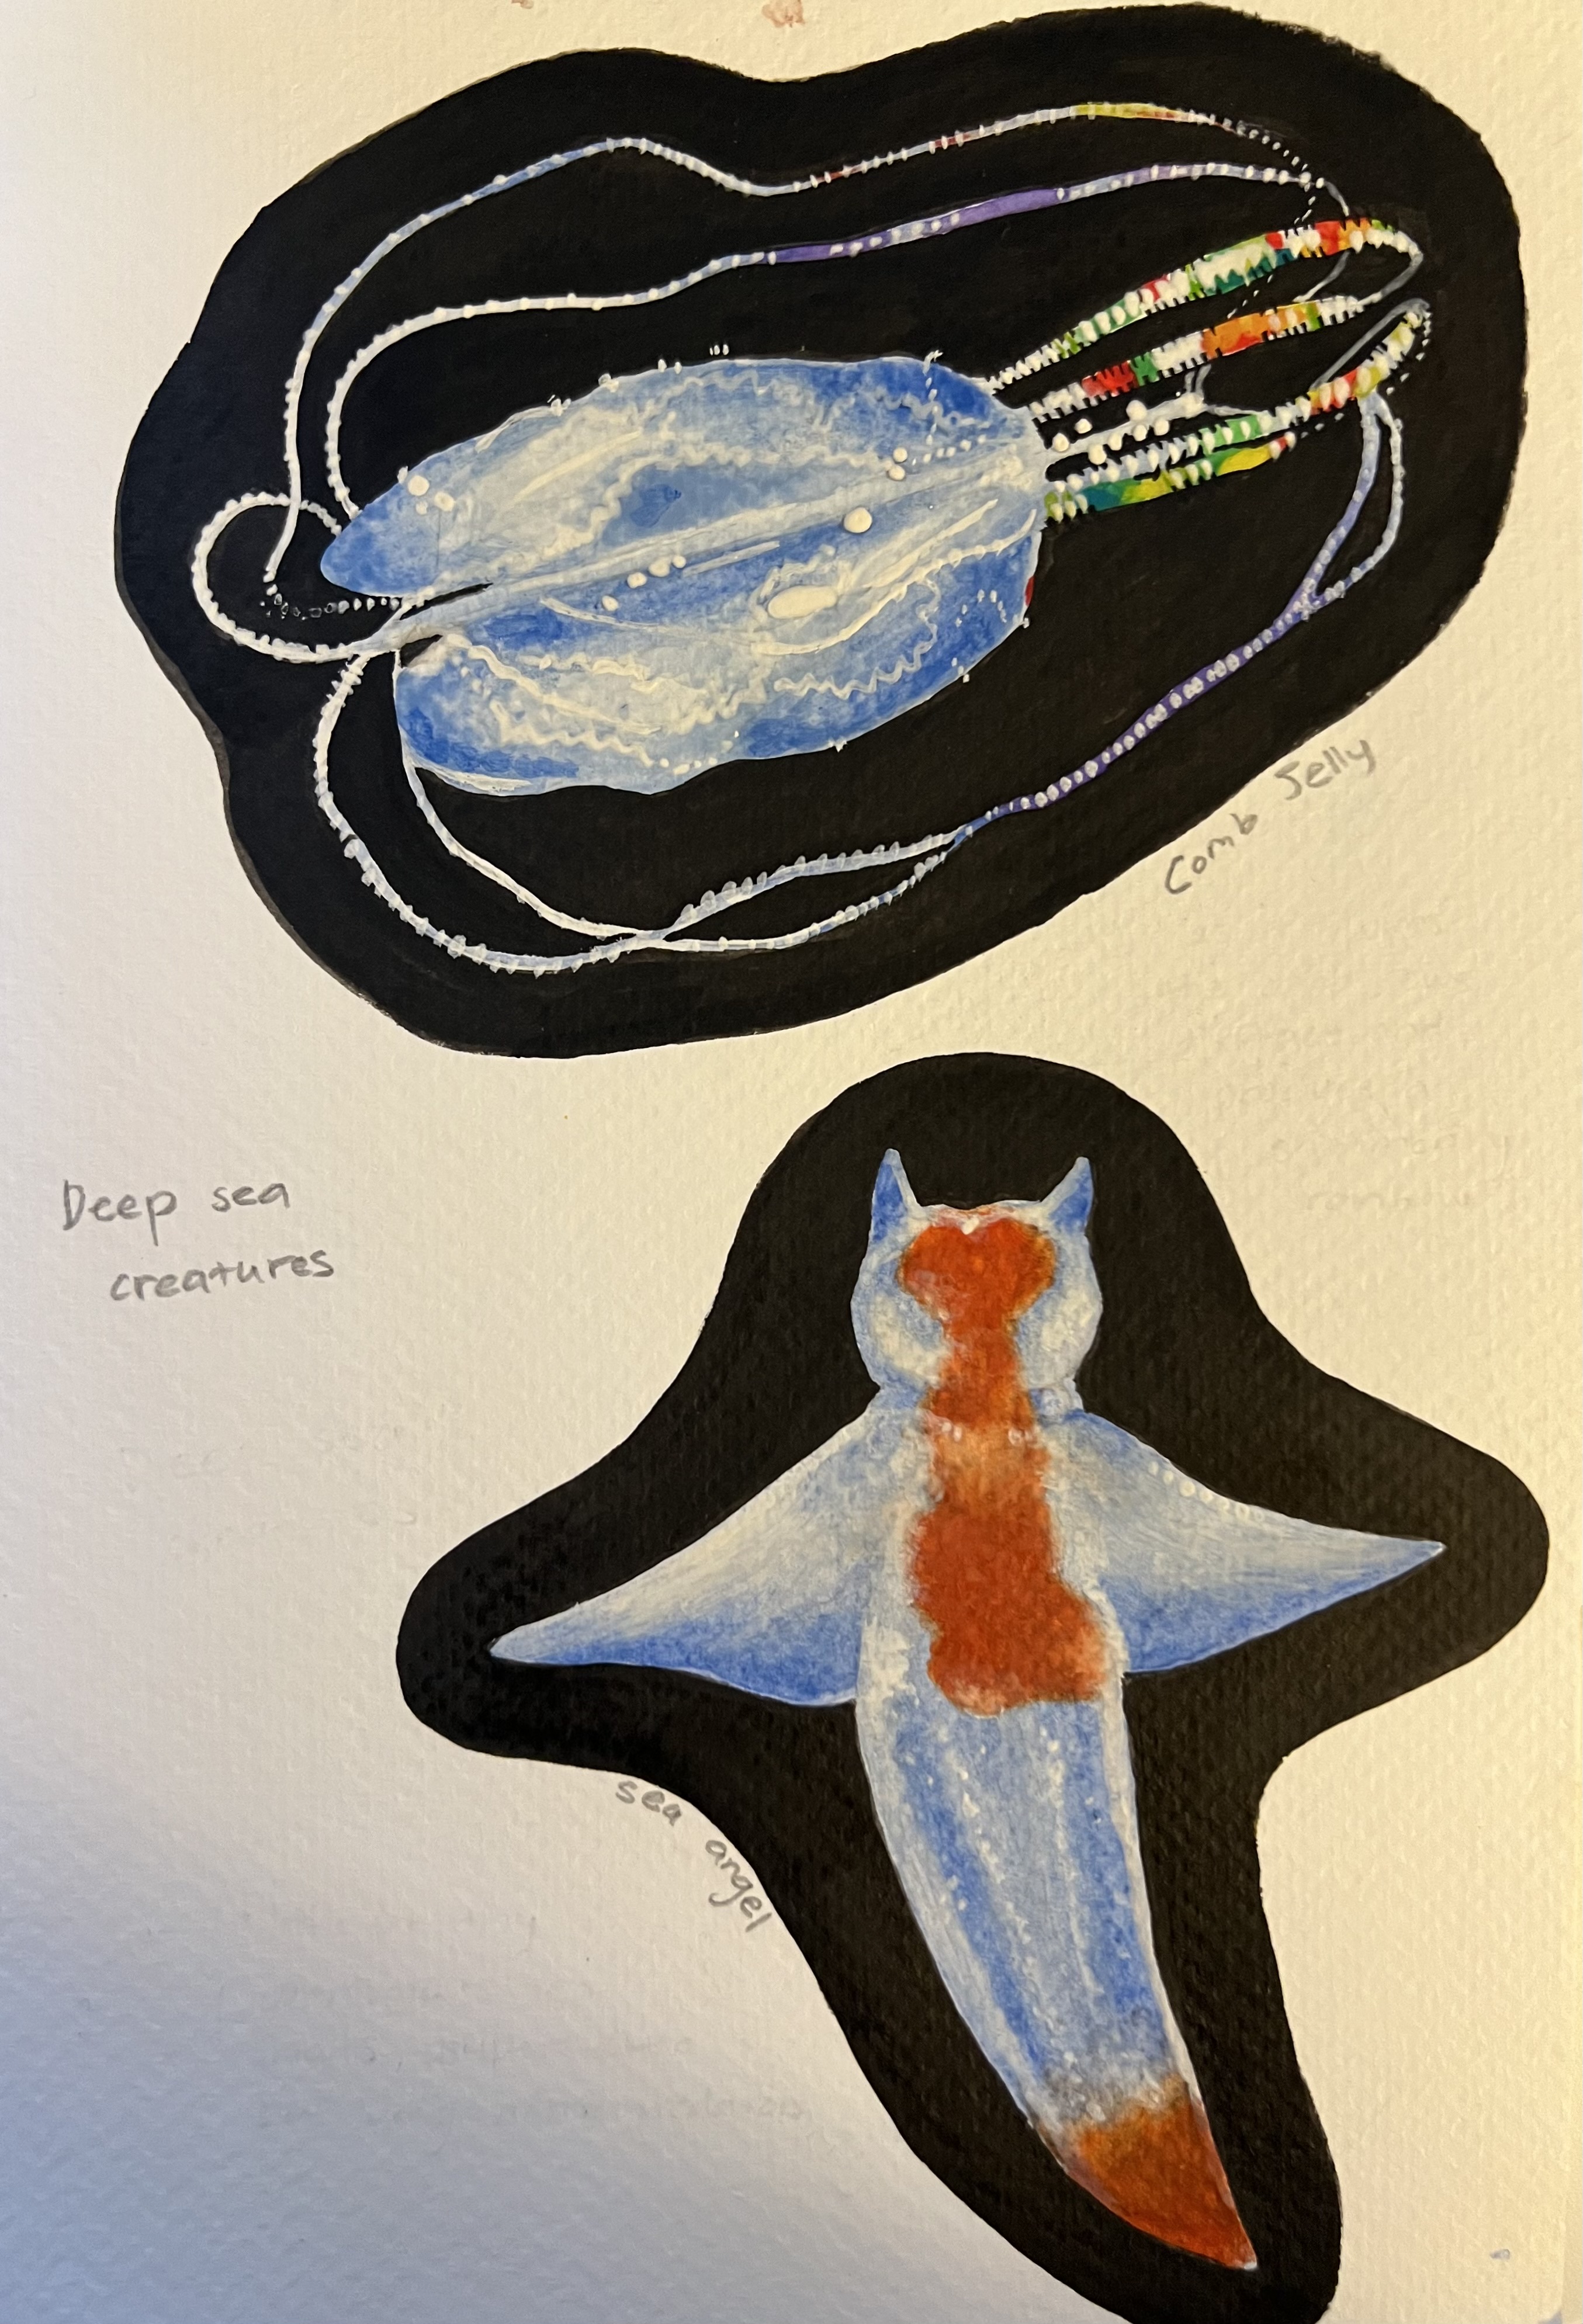 Comb Jelly
Deep sea
creatures
sea angel